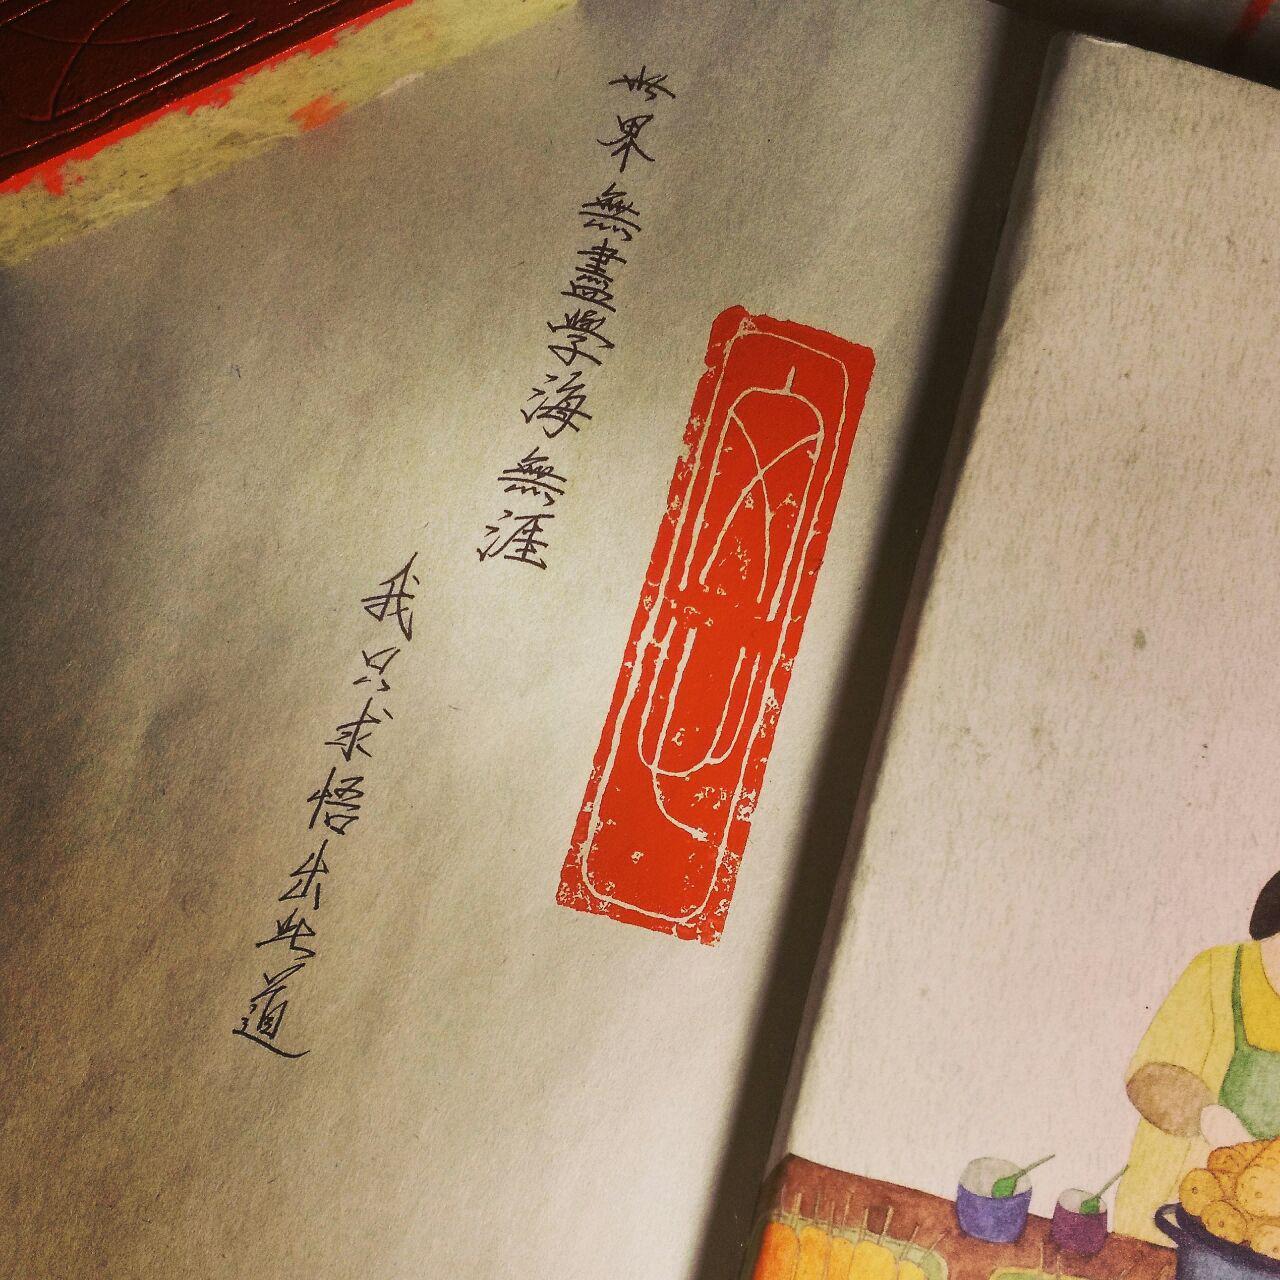 世界無盡學海無涯
我只求悟出此道